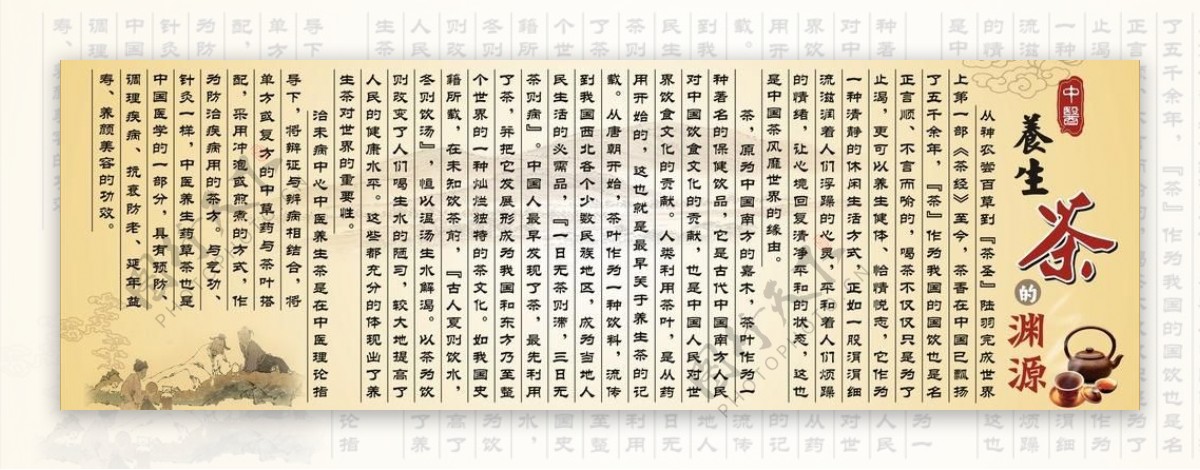 中醫
養生
茶
的
渊源
从神农尝百草到『茶圣』陆羽完成世界
上第一部《茶经》至今，茶香在中国已飘扬
了五千余年，『茶』作为我国的国饮也是名
正言顺、不言而喻的，喝茶不仅仅只是为了
止渴，更可以养生健体、怡情悦志，它作为
一种清静的休闲生活方式，正如一股涓涓细
流滋润着人们浮躁的心灵，平和着人们烦躁
的情绪，让心境回复清净平和的状态，这也
是中国茶风靡世界的缘由。
茶，原为中国南方的嘉木，茶叶作为一
种著名的保健饮品，它是古代中国南方人民
对中国饮食文化的贡献，也是中国人民对世
界饮食文化的贡献。人类利用茶叶，是从药
用开始的，这也就是最早关于养生茶的记
载。从唐朝开始，茶叶作为一种饮料，流传
到我国西北各个少数民族地区，成为当地人
民生活的必需品，『一日无茶则滞，三日无
茶则病』。中国人最早发现了茶，最先利用
了茶，并把它发展形成为我国和东方乃至整
个世界的一种灿烂独特的茶文化。如我国史
籍所载，在未知饮茶前，『古人夏则饮水，
冬则饮汤』，恒以温汤生水解渴。以茶为饮
则改变了人们喝生水的陋习，较大地提高了
人民的健康水平。这些都充分的体现出了养
生茶对世界的重要性。
治未病中心中医养生茶是在中医理论指
导下，将辩证与辨病相结合，将
单方或复方的中草药与茶叶搭
配，采用冲泡或煎煮的方式，作
为防治疾病用的茶方。与艺功、
针灸一样，中医养生药草茶也是
中国医学的一部分，具有预防、
调理疾病、抗衰防老、延年益
寿、养颜美容的功效。